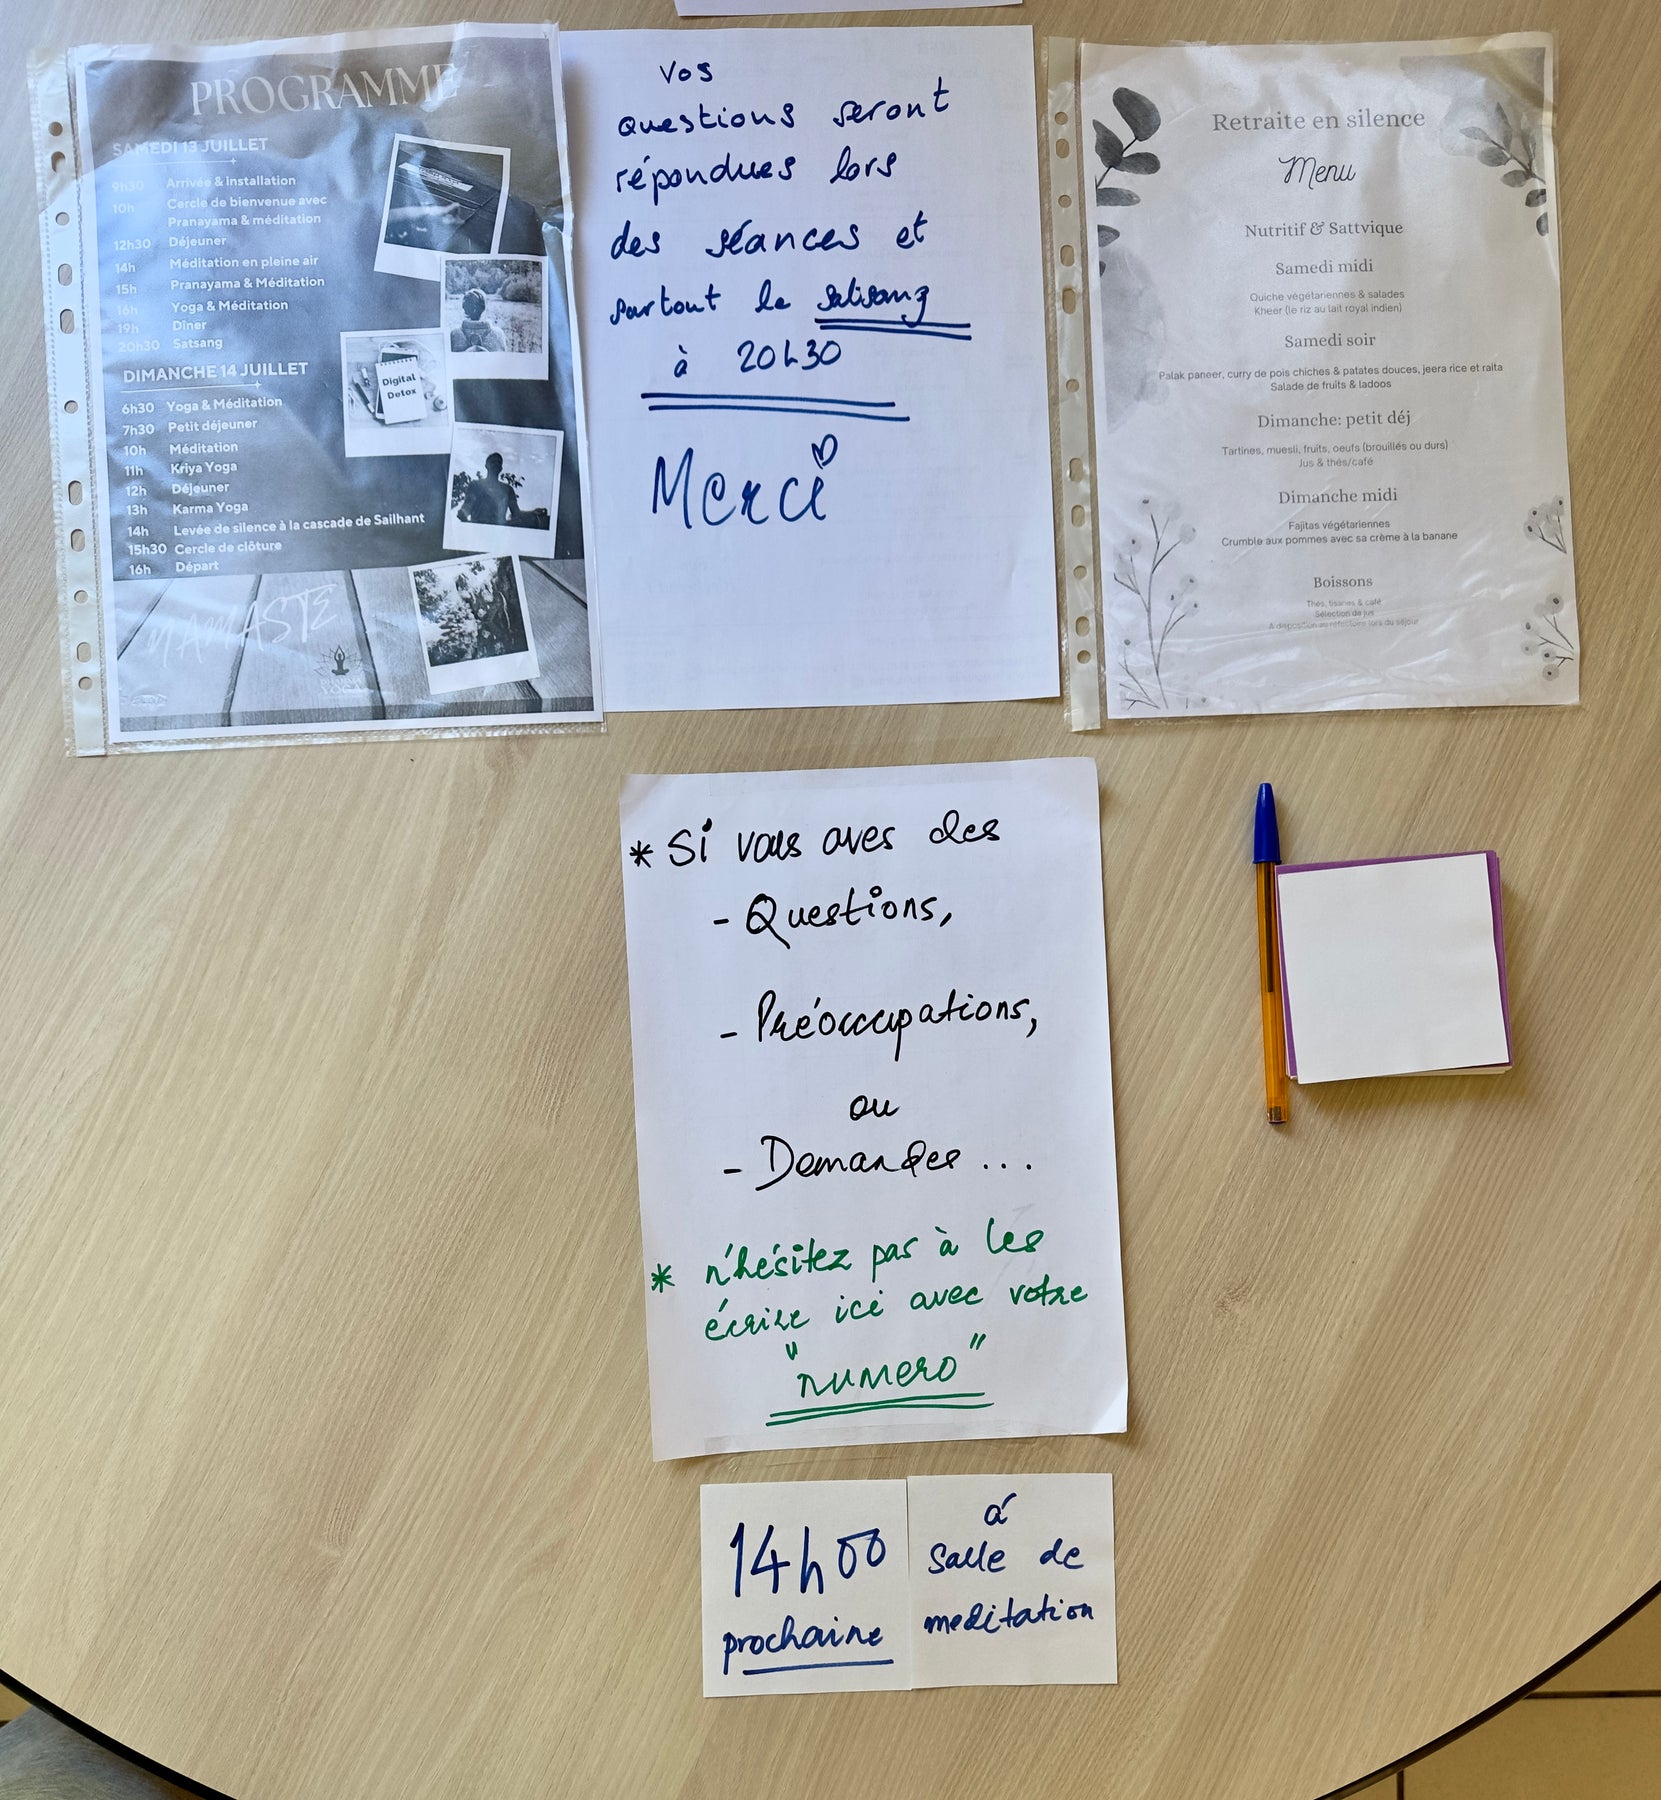 PROGRAMME
SAMEDI 13 JUILLET
9h30 Arrivée & installation
10h Cercle de bienvenue avec
Pranayama & méditation
12h30 Déjeuner
14h Méditation en pleine air
15h Pranayama & Méditation
16h Yoga & Méditation
19h Dîner
20h30 Satsang
DIMANCHE 14 JUILLET
6h30 Yoga & Méditation
7h30 Petit déjeuner
10h Méditation
11h Kriya Yoga
12h Déjeuner
13h Karma Yoga
14h Levée de silence à la cascade de Sailhant
15h30 Cercle de clôture
16h Départ
Digital
Detox
NAMASTE
YOGA
Vos
questions seront
répondues lors
des séances et
surtout le satsang
à 20h30
Merci
Retraite en silence
Menu
Nutritif & Sattvique
Samedi midi
Quiche végétariennes & salades
Kheer (le riz au lait royal indien)
Samedi soir
Palak paneer, curry de pois chiches & patates douces, jeera rice et raita
Salade de fruits & ladoos
Dimanche: petit déj
Tartines, muesli, fruits, oeufs (brouillés ou durs)
Jus & thés/café
Dimanche midi
Fajitas végétariennes
Crumble aux pommes avec sa crème à la banane
Boissons
Thés, tisanes & café
Sélection de jus
A disposition au réfectoire lors du séjour
* Si vous aves des
- Questions,
- Préoccupations,
ou
- Demandes ...
* n'hésitez pas à les
écrire ici avec votre
"numero"
14h00
prochaine
á
Salle de
meditation